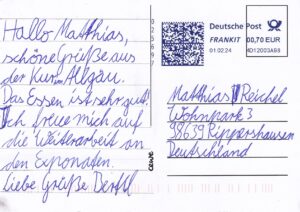 Hallo Matthias,
schöne Grüße aus
der Kur im Allgäu.
Das Essen ist sehr gut!
Ich freue mich auf
die Weiterarbeit an
den Exponaten.
Liebe Grüße Bertl
Deutsche Post
FRANKIT 00,70 EUR
01.02.24 4D12003A98
Matthias Reichel
Wohnpark 3
98639 Rippershausen
Deutschland